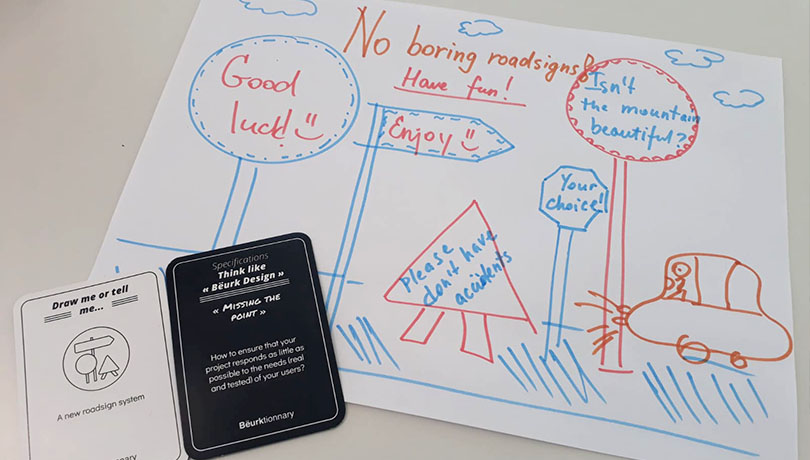 No boring roadsigns!
Have fun!
Good
luck!
Enjoy
Isn't
the mountain
beautiful?
Your
choice!
Please
don't have
accidents
Draw me or tell
me...
A new roadsign system
Specifications
Think like
« Bëurk Design »
« MISSING THE
POINT »
How to ensure that your
project responds as little as
possible to the needs (real
and tested) of your users?
Bëurktionnary